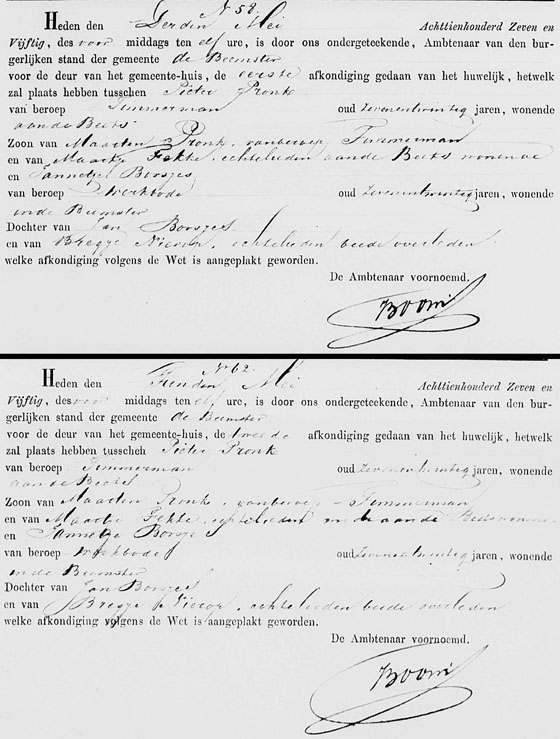 No 58.
Heden den Derden Mei Achttienhonderd Zeven en
Vijftig, des voor middags ten elf ure, is door ons ondergeteekende, Ambtenaar van den bur-
gerlijken stand der gemeente de Beemster
voor de deur van het gemeente-huis, de eerste afkondiging gedaan van het huwelijk, hetwelk
zal plaats hebben tusschen Pieter Pronk
van beroep Timmerman oud zevenentwintig jaren, wonende
aan de Beets
Zoon van Maarten Pronk, van beroep Timmerman
en van Maartje Fekke, echtelieden aan de Beets wonende
en Jannetje Borsjes
van beroep werkbode oud zevenentwintig jaren, wonende
in de Beemster
Dochter van Jan Borsjes
en van Bregje Nierop, echtelieden beide overleden.
welke afkondiging volgens de Wet is aangeplakt geworden.
De Ambtenaar voornoemd.
Boon
No 62.
Heden den Tienden Mei Achttienhonderd Zeven en
Vijftig, des voor middags ten elf ure, is door ons ondergeteekende, Ambtenaar van den bur-
gerlijken stand der gemeente de Beemster
voor de deur van het gemeente-huis, de tweede afkondiging gedaan van het huwelijk, hetwelk
zal plaats hebben tusschen Pieter Pronk
van beroep Timmerman oud zevenentwintig jaren, wonende
aan de Beets
Zoon van Maarten Pronk, van beroep Timmerman
en van Maartje Fekke, echtelieden aan de Beets wonende
en Jannetje Borsjes
van beroep werkbode oud zevenentwintig jaren, wonende
in de Beemster
Dochter van Jan Borsjes
en van Bregje Nierop, echtelieden beide overleden
welke afkondiging volgens de Wet is aangeplakt geworden.
De Ambtenaar voornoemd.
Boon